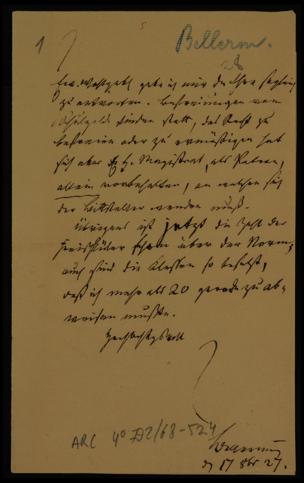 1
5
Bellerm.
Ew. Wohlgeb. gebe ich mir die Ehre
zu antworten. Befreiungen vom
Schulgeld finden statt, das Recht zu
befreien oder zu ermäßigen hat
sich aber E. H. Magistrat, als Patron,
allein vorbehalten, an welchen sich
der Bittsteller wenden muß.
Übrigens ist jetzt die Zahl der
Freischüler schon über der Norm,
auch sind die Classen so besetzt,
daß ich mehr als 20 gerade zu ab-
weisen mußte.
Hochachtungsvoll
Bellermann
d 17 27.
ARC 4° 792/68-524